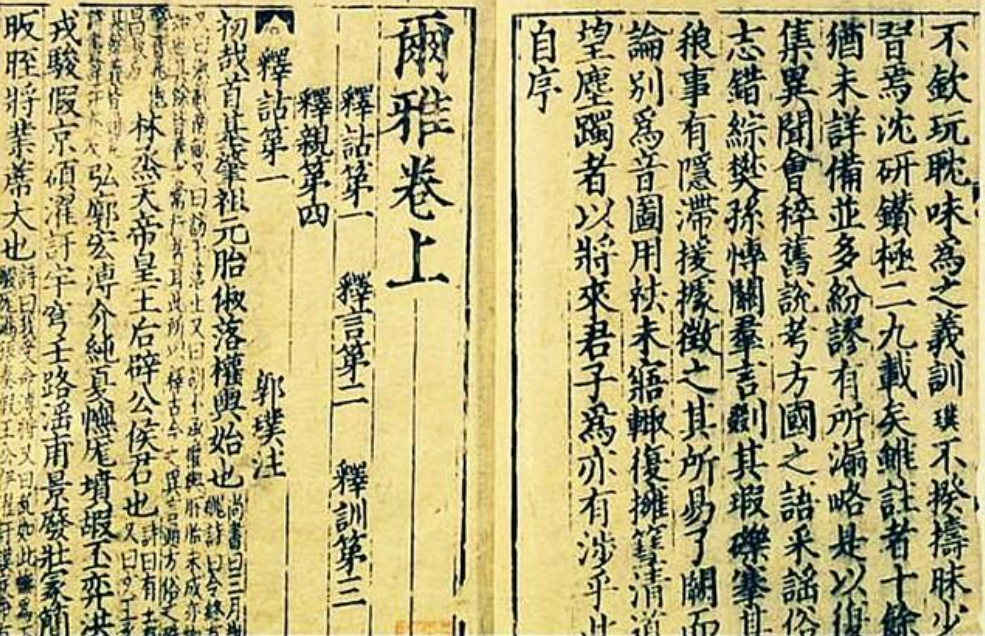 不欽玩耽味為之義訓璞不揆擣昧少
習焉沈研鑚極二九載矣雖註者十餘
猶未詳備並多紛謬有所漏略是以復
集異聞會稡舊說考方國之語采謠俗
志錯綜樊孫愽關羣言剟其瑕礫搴其
稂事有隱滯援據徵之其所易了闕而
論別爲音圖用袪未寤輙復擁篲清道
望塵躅者以將來君子爲亦有涉乎此
自序
爾雅卷上
釋詁第一 釋言第二 釋訓第三
釋親第四
釋詁第一 郭璞注
初哉首基肇祖元胎俶落權輿始也 尚書曰三月
林烝天帝皇王后辟公侯君也 詩曰有壬 又曰
弘廓宏溥介純夏幠厖墳嘏丕弈洪
戎駿假京碩濯訏宇穹壬路淫甫景廢壯冢簡
昄晊將業席大也 詩曰我受命溥將又曰亂如此幠爲下